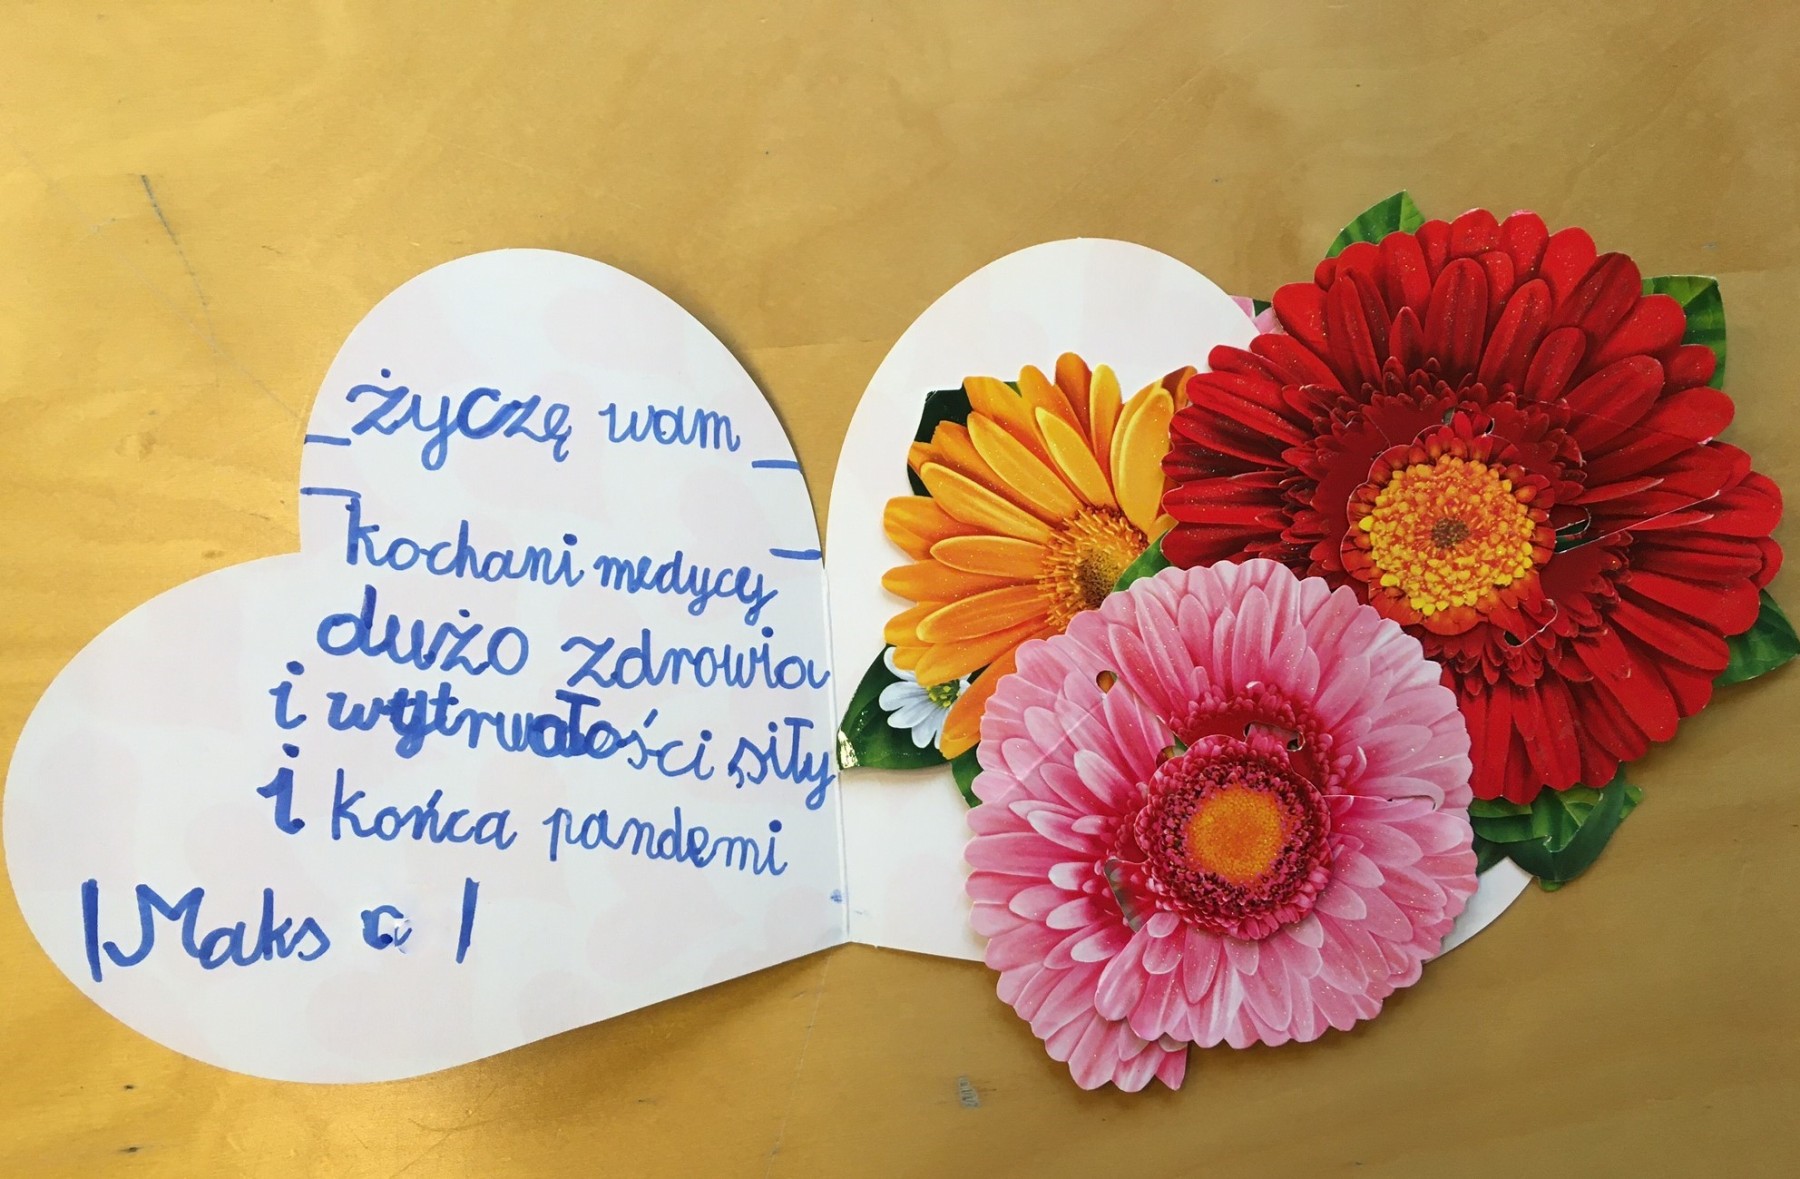 życzę wam
kochani medycy
dużo zdrowia
i wytrwałości, siły
i końca pandemi
Maks